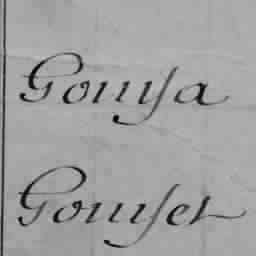 Gomſa
Gomſet